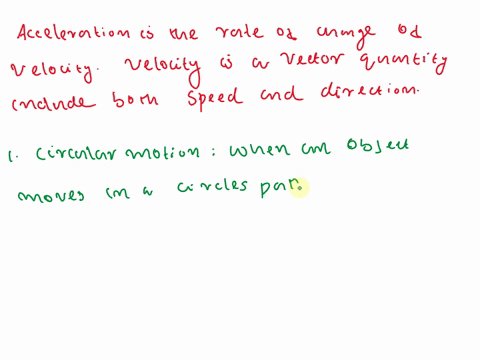 Acceleration is the rate of change of
velocity. Velocity is a vector quantity
include both speed and direction.
1. Circular motion : When an object
moves in a circles pan.